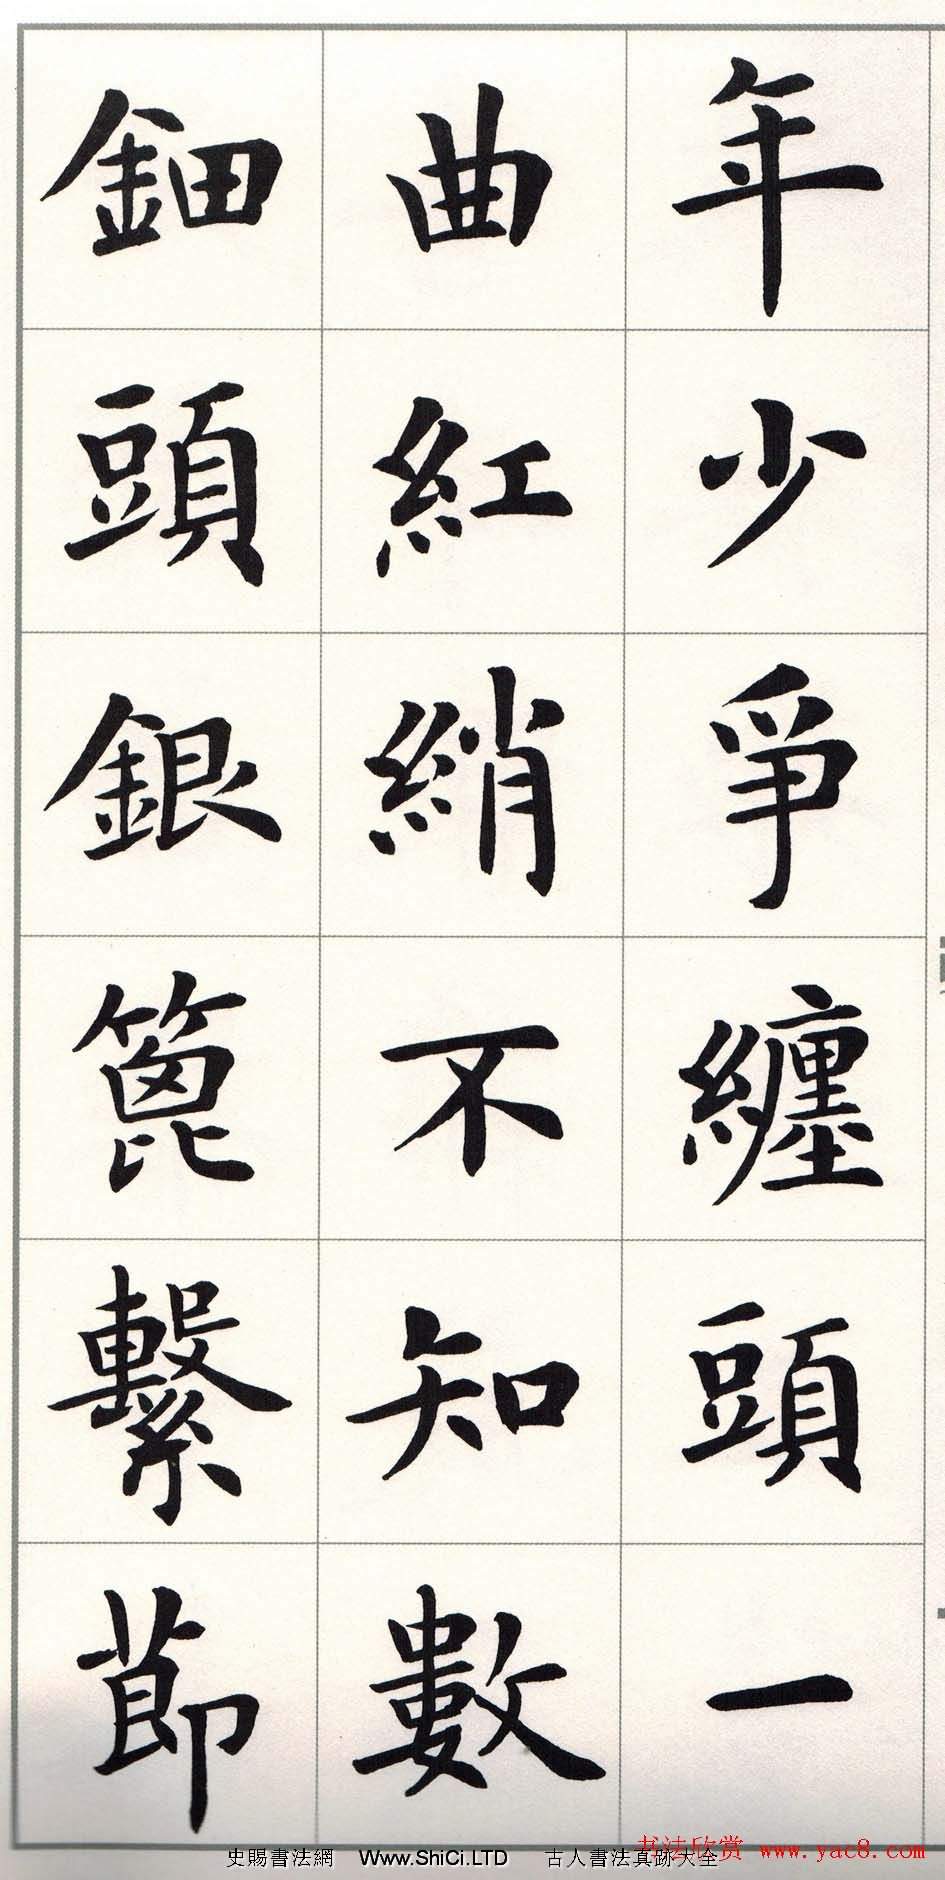 年少爭纏頭一
曲紅綃不知數
鈿頭銀篦繫節
史賜書法網 Www.ShiCi.LTD 古人書法真跡大全
书法欣赏 www.yac8.com